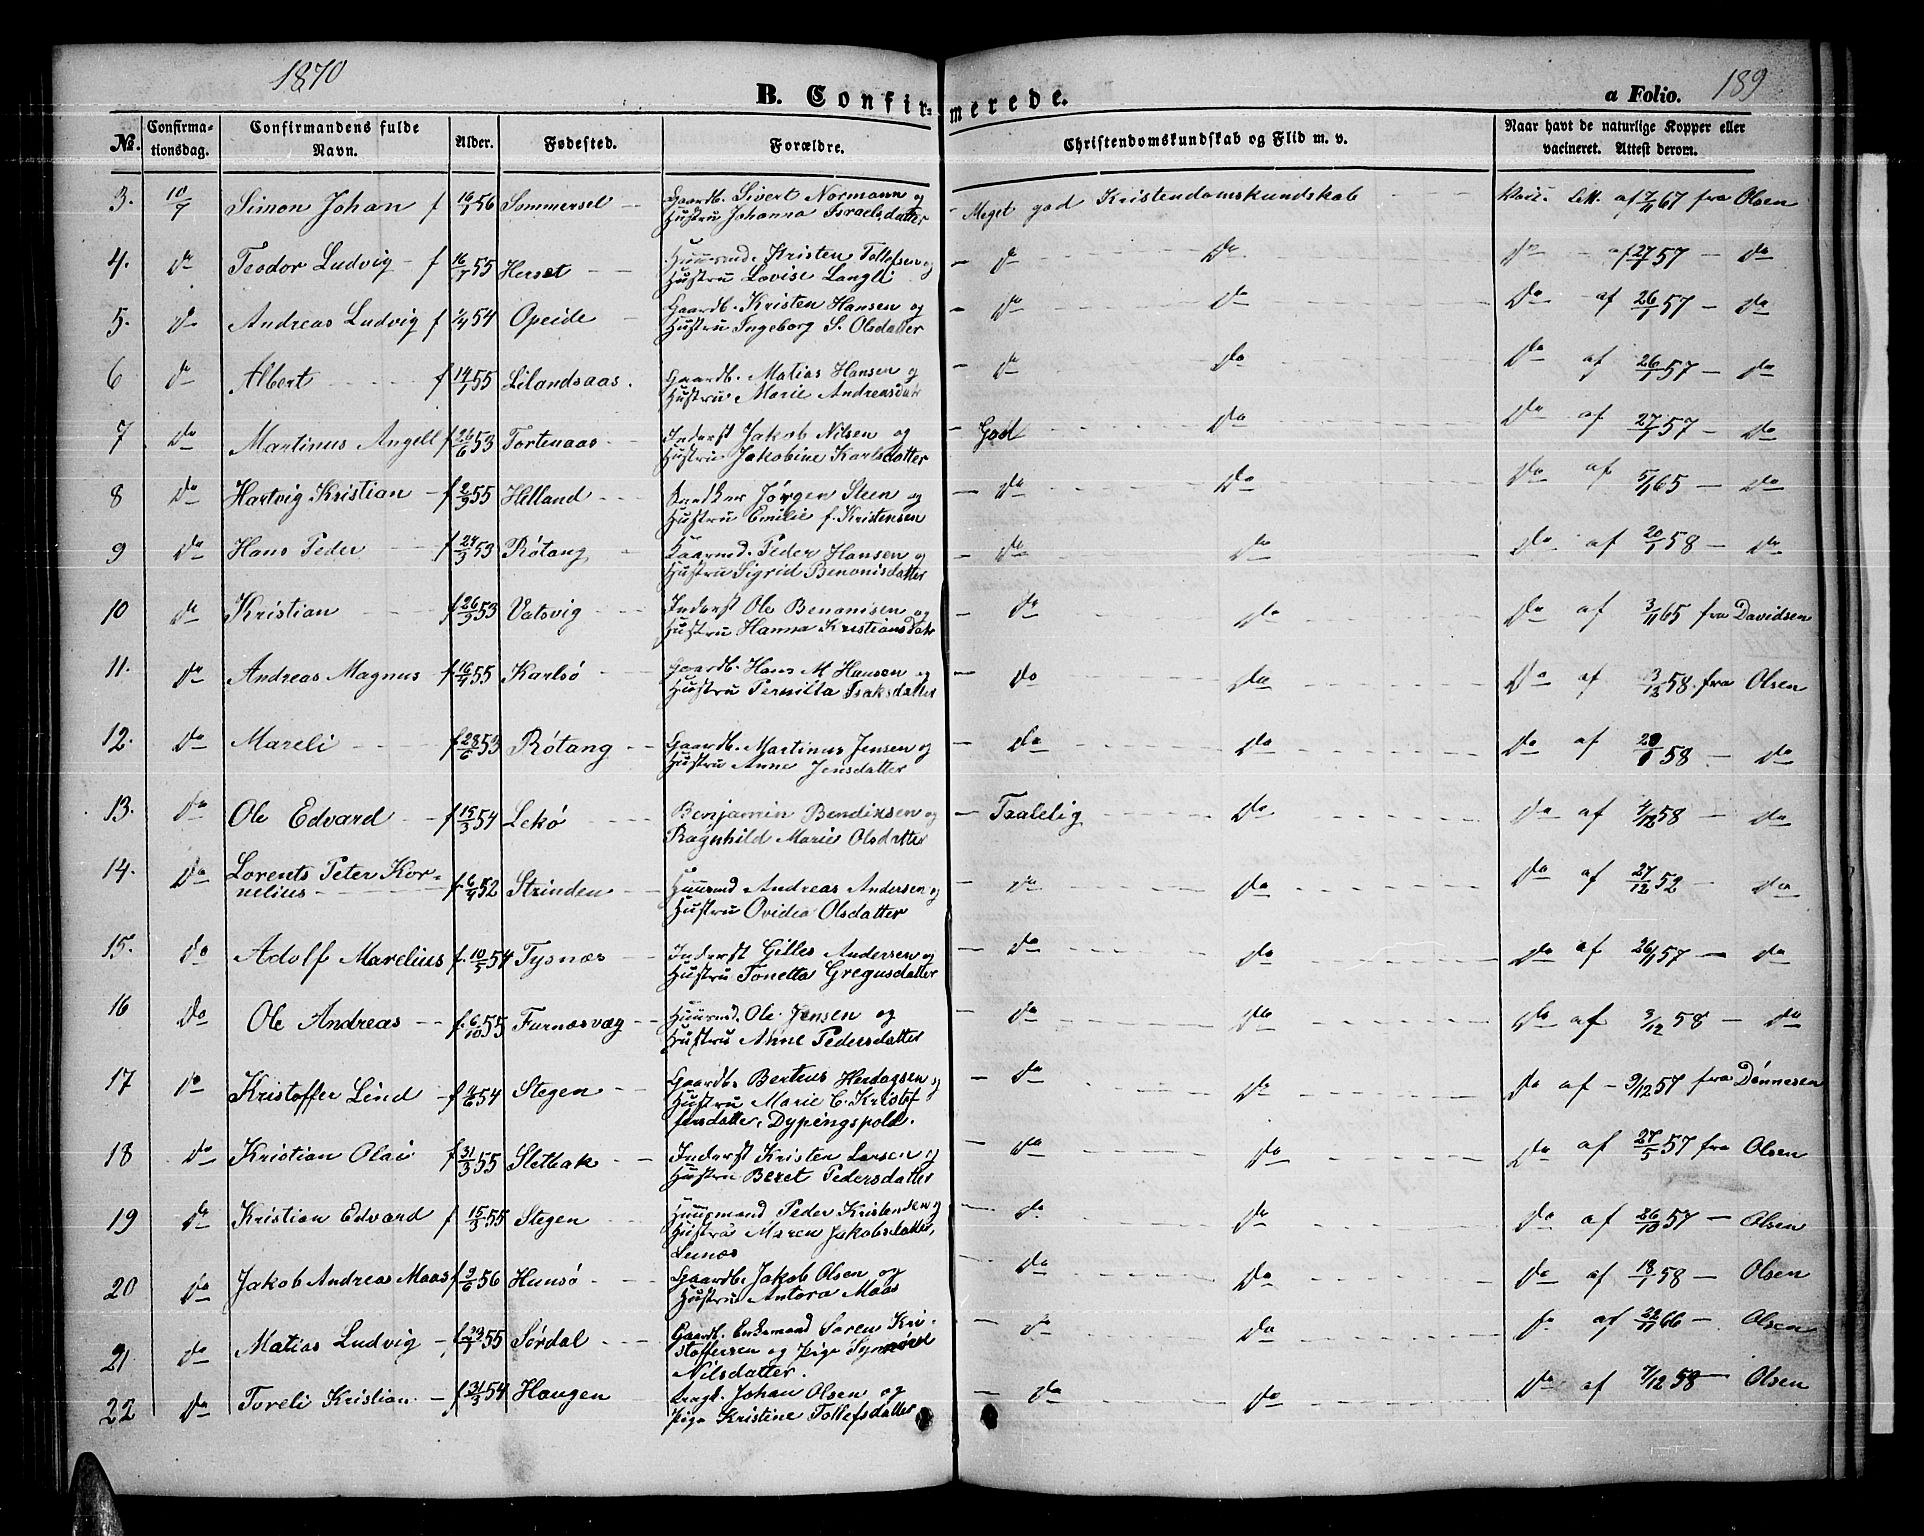 1870
189
B. Confirmerede.
a Folio.
No. Confirmationsdag. Confirmandens fulde Navn. Alder. Fødested. Forældre. Christendomskundskab og Flid m. v. Naar havt de naturlige Kopper eller vacineret. Attest derom.
3. 10/7 Simon Johan f 16/1 56 Sommersel Gaardb. Sivert Normann og Hustru Johanna Israelsdatter Meget god Kristendomskundskab af 7/11 67 fra Olsen
4. Do Teodor Ludvig f 16/7 55 Herset Huusmd. Kristen Tollefsen og Hustru Lovise Langli Do Do Do af 27/7 57 Do
5. Do Andreas Ludvig f 54 Opeide Gaardb. Kristen Hansen og Hustru Ingeborg S. Olsdatter Do Do Do af 26/1 57 Do
6 Do Albert f 14/1 55 Lilandsaas. Gaardb. Matias Hansen og Hustru Marie Andreasdatr Do Do Do af 26/1 57 Do
7 Do Martinus Angell f 26/6 53 Tortenaas Inderst Jakob Nilsen og Hustru Jakobine Karlsdatter God Do Do af 27/1 57 Do
8 Do Hartvig Kristian f 2/9 55 Helland Jørgen Steen og Hustru Emilie f. Kristensen Do Do Do af 5/1 65 Do
9 Do Hans Peder f 24/3 53 Røtang Kaarmd. Peder Hansen og Hustru Sigrid Benonisdatter Do Do Do af 20/1 58 Do
10 Do Kristian f 26/3 53 Vatsvig Inderst Ole Benonisen og Hustru Hanna Kristiansdatr Do Do Do af 3/11 65 fra Davidsen
11. Do Andreas Magnus f 16/7 55 Karlsø Gaardb. Hans M Hansen og Hustru Pernilla Isaksdatter Do Do Do af 3/12 58. fra Olsen
12. Do Mareli f 28/6 53 Røtang Gaardb. Martinus Jensen og Hustru Anne Jensdatter Do Do Do af 58 Do
13. Do Ole Edvard f 15/3 54 Lekø Benjamin Bendixsen og Ragnhild Marie Olsdatter Taalelig Do Do af 4/12 58 Do
14. Do Lorents Peter Kornelius f. 6/4 52 Strinden Huusmd Andreas Andersen og Hustru Ovidea Olsdatter Do Do Do af 27/12 52 Do
15. Do Adolf Marelius f. 10/5 54 Tysnæs Inderst Gilles Andersen og Hustru Tonetta Gregusdatter Do Do Do af 26/1 57 Do
16 Do Ole Andreas f. 6/10 55 Furnæsvæg Huusmd. Ole Jensen og Hustru Anne Pedersdatter Do Do Do af 3/12 58 Do
17 Do Kristoffer Lind f 54 Stegen Gaardb. Bertius Herdagsen og Hustru Marie C. Kristoffersdatter, Dypingspold. Do Do Do af 9/12 57 fra Dønnesen
18 Do Kristian Olai f 31/3 55 Sletbak Inderst Kristen Larsen og Hustru Beret Pedersdatter Do Do Do af 27/5 57 fra Olsen
19 Do Kristian Edvard f 15/3 55 Stegen Huusmand Peder Kristensen og Hustru Maren Jakobsdatter, Leinæs Do Do Do af 26/10 57 Olsen
20 Do Jakob Andreas Maas f 9/6 56 Hunsø Gaardb. Jakob Olsen og Hustru Antora Maas Do Do Do af 18/1 58 Olsen
21 Do Matias Ludvig f 55 Sørdal Gaardb. Enkemand Søren Kristoffersen og Pige Synnøve Nilsdatter. Do Do Do af 66 Olsen
22 Do Toreli Kristian f 21/3 54 Haugen Johan Olsen og Pige Kristine Tollefsdatter Do Do Do af 7/12 58 Olsen